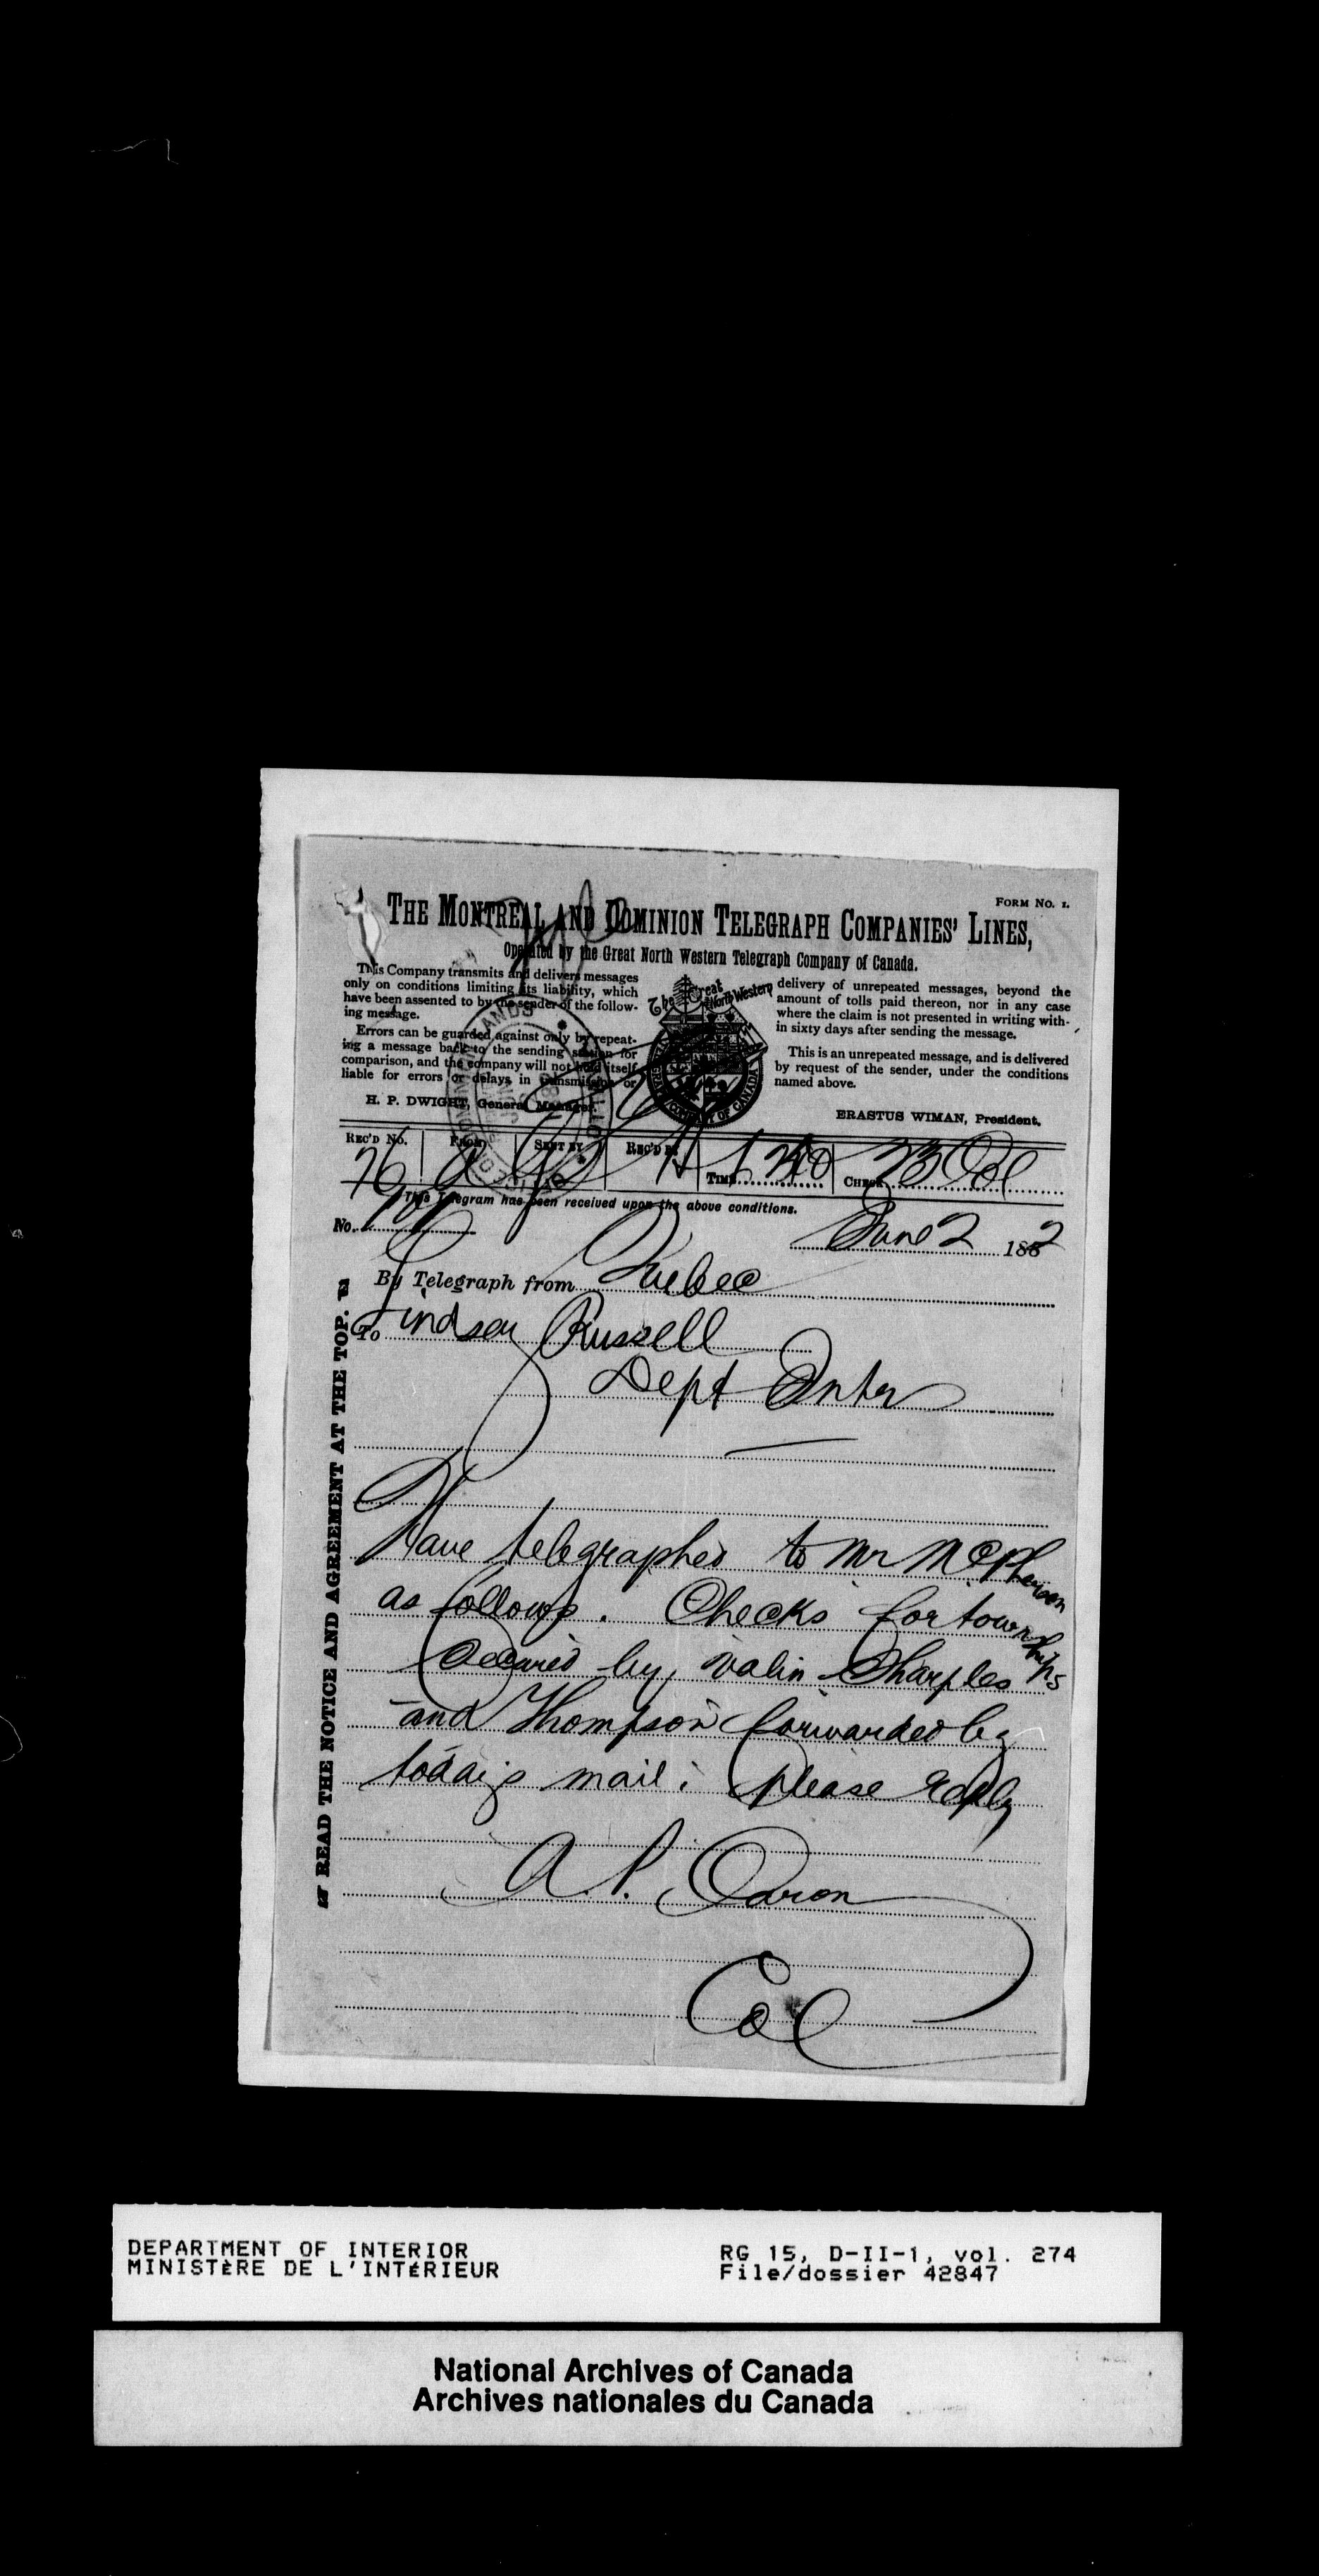 FORM No. 1.
THE MONTREAL AND DOMINION TELEGRAPH COMPANIES' LINES,
Operated by the Great North Western Telegraph Company of Canada.
This Company transmits and delivers messages
only on conditions limiting its liability, which
have been assented to by the sender of the follow-
ing message.
Errors can be guarded against only by repeat-
ing a message back to the sending station for
comparison, and the company will not hold itself
liable for errors or delays in transmission or
delivery of unrepeated messages, beyond the
amount of tolls paid thereon, nor in any case
where the claim is not presented in writing with-
in sixty days after sending the message.
This is an unrepeated message, and is delivered
by request of the sender, under the conditions
named above.
H. P. DWIGHT, General Manager.
ERASTUS WIMAN, President.
The Great North Western
TELEGRAPH COMPANY OF CANADA
REC'D No. FROM SENT BY REC'D BY TIME CHECK
76 23 Col
This Telegram has been received upon the above conditions.
No.
June 2 1882
By Telegraph from Quebec
To Lindsay Russell
Dept Inter
Have telegraphed to Mr McPherson
as follows. Checks for townships
secured by Valin Sharples
and Thompson forwarded by
todays mail. please reply
A. P. Caron
Col
READ THE NOTICE AND AGREEMENT AT THE TOP.
DEPARTMENT OF INTERIOR
MINISTÈRE DE L'INTÉRIEUR
RG 15, D-II-1, vol. 274
File/dossier 42847
National Archives of Canada
Archives nationales du Canada